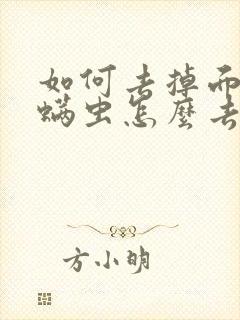 如何去掉而
螨虫怎麽去
方小明